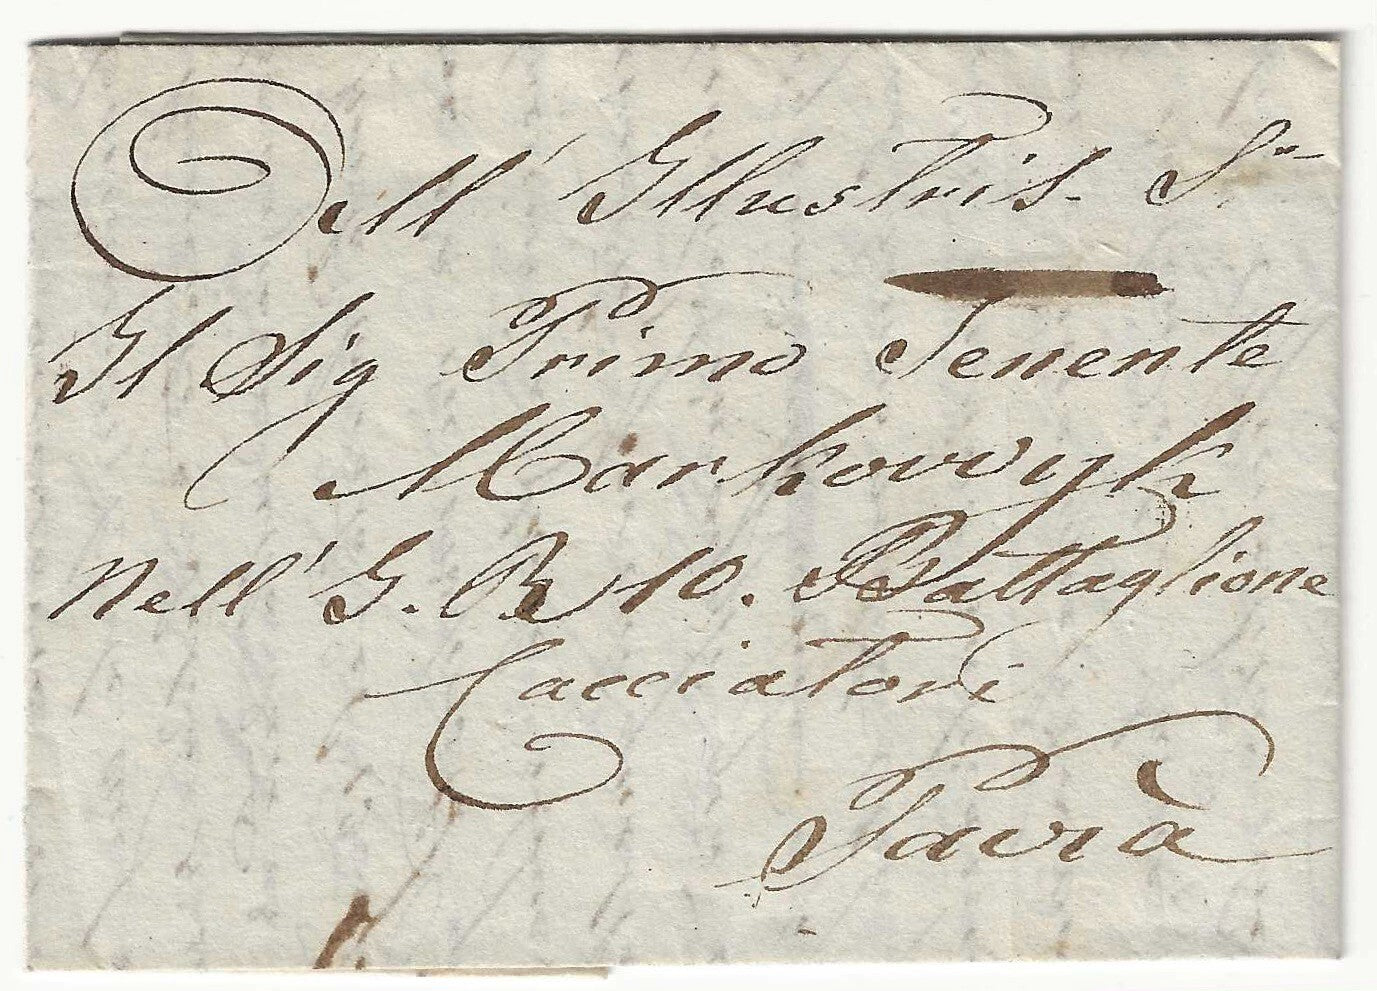 Dell' Illustris. S.
Il Sig Primo Tenente
Markovvyk
Nell' I. R. 10. Battaglione
Cacciatori
Pavia